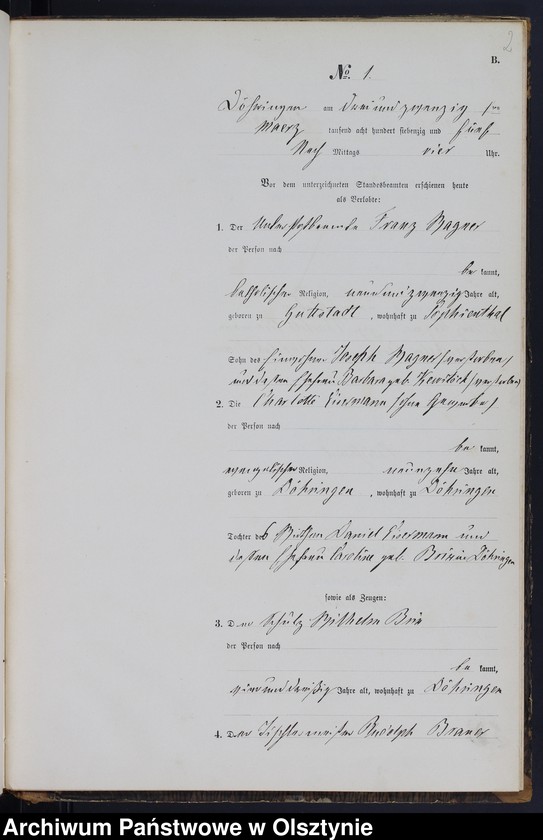 2
B.
No. 1.
Döhringen am dreiundzwanzig ten
Maerz tausend acht hundert siebenzig und fünf
Nach Mittags vier Uhr.
Vor dem unterzeichneten Standesbeamten erschienen heute
als Verlobte:
1. Der Franz Wagner
der Person nach
be kannt,
katholischer Religion, neunundzwanzig Jahre alt,
geboren zu Guttstadt, wohnhaft zu Sophienthal
Sohn des Joseph Wagner (verstorben)
und dessen Ehefrau Barbara geb. (verstorben)
2. Die Charlotte (ohne Gewerbe)
der Person nach
be kannt,
evangelischer Religion, neunzehn Jahre alt,
geboren zu Döhringen, wohnhaft zu Döhringen
Tochter des Daniel und
dessen Ehefrau Caroline geb. Döhringen
sowie als Zeugen:
3. Der Schulz Wilhelm
der Person nach
be kannt,
vierunddreißig Jahre alt, wohnhaft zu Döhringen
4. Der Tischlermeister Rudolph
Archiwum Państwowe w Olsztynie